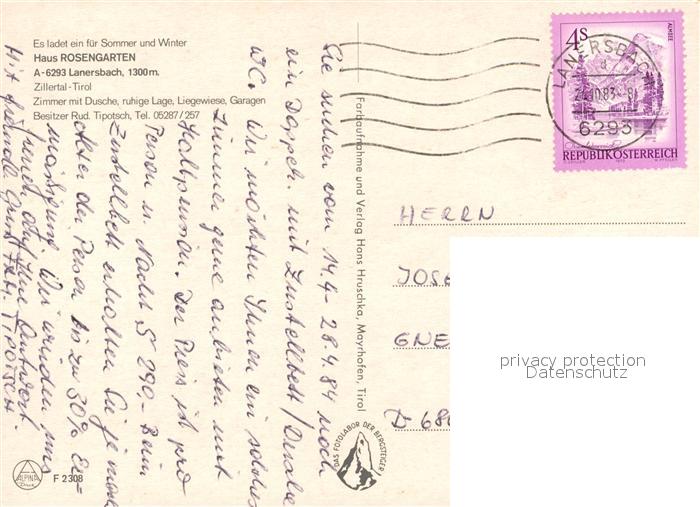 Es ladet ein für Sommer und Winter
Haus ROSENGARTEN
A-6293 Lanersbach, 1300 m.
Zillertal-Tirol
Zimmer mit Dusche, ruhige Lage, Liegewiese, Garagen
Besitzer Rud. Tipotsch, Tel. 05287/257
Sie suchen vom 14.4 - 28.4.84 noch
ein Doppelz. mit Zustellbett / Dusche
WC.
Wir möchten Ihnen ein solches
Zimmer gerne anbieten mit
Halbpension. Der Preis ist pro
Person u. Nacht S 290,- Beim
Zustellbett erhalten Sie je nach
Alter der Person bis zu 30% Er-
mässigung. Wir würden uns
freuen auf Ihre Antwort.
Mit freundl. Gruß Fam. TIPOTSCH.
ALPINA
Druck
F 2308
Farbaufnahme und Verlag Hans Hruschka, Mayrhofen, Tirol
DAS FOTOLABOR DER BERGSTEIGER
4S
ALMSEE
REPUBLIK ÖSTERREICH
LANERSBACH
6293
HERRN
JOSE
GNE
D-680
privacy protection
Datenschutz